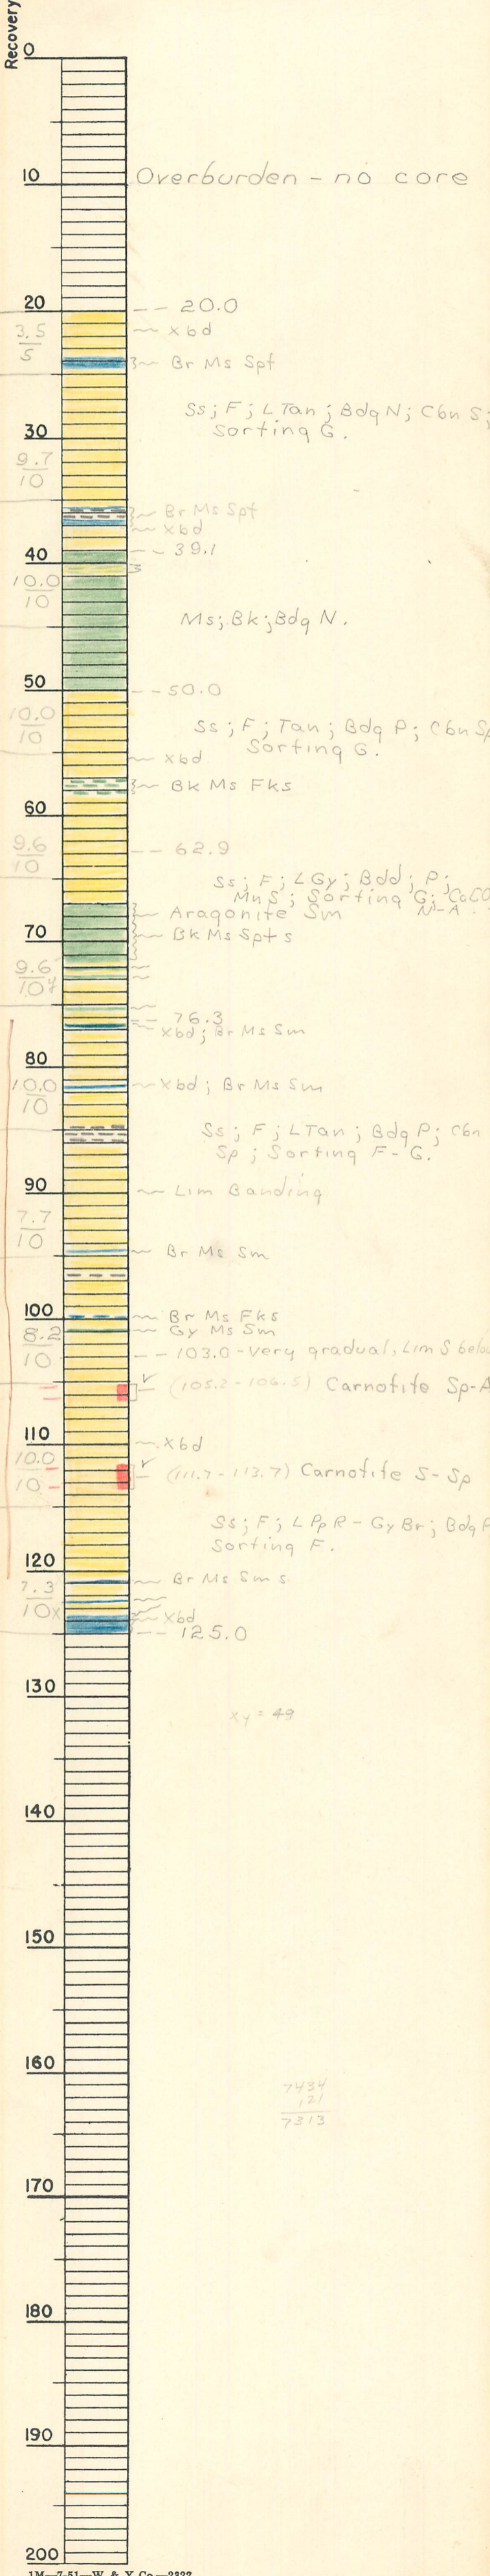 Recovery
0
10 Overburden - no core
20 -- 20.0
3.5
5
xbd
Br Ms Spt
Ss; F; L Tan; Bdg N; Cbn S;
30 Sorting G.
9.7
10
Br Ms Spt
xbd
-- 39.1
40
10.0
10
Ms; Bk; Bdg N.
50 -- 50.0
10.0
10
Ss; F; Tan; Bdg P; Cbn Sp
Sorting G.
xbd
Bk Ms Fks
60
9.6
10
-- 62.9
Ss; F; L Gy; Bdd; P;
MnS; Sorting G; CaCO
Aragonite Sm N-A
70 Bk Ms Spts
9.6
10 y
-- 76.3
xbd; Br Ms Sm
80
10.0
10
xbd; Br Ms Sm
Ss; F; L Tan; Bdg P; Cbn
Sp; Sorting F-G.
90 Lim Banding
7.7
10
Br Ms Sm
100 Br Ms Fks
Gy Ms Sm
8.2
10
-- 103.0 - Very gradual, Lim S below
(105.2 - 106.5) Carnotite Sp-A
110 xbd
10.0
10
(111.7 - 113.7) Carnotite S-Sp
Ss; F; L Pp R - Gy Br; Bdg P
Sorting F.
120
Br Ms Sm s
7.3
10 x
xbd
-- 125.0
130
xy = 49
140
150
160
7434
121
7313
170
180
190
200
1M—7-51—W. & Y. Co.—2322